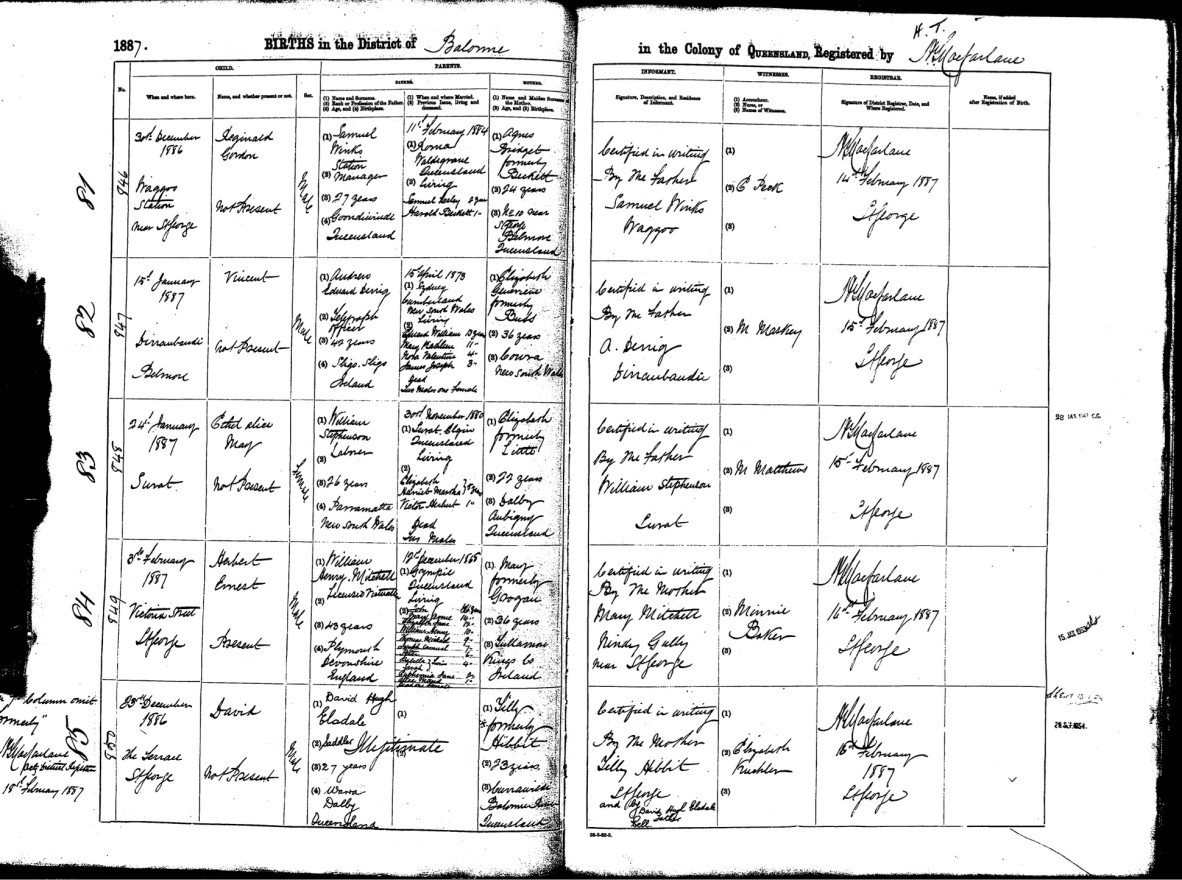 1887.
BIRTHS in the District of Balonne
in the Colony of QUEENSLAND, Registered by
H. T.
McMacfarlane
CHILD.
PARENTS.
No.
When and where born.
Name, and whether present or not.
Sex.
FATHER.
MOTHER.
(1) Name and Surname.
(2) Rank or Profession of the Father.
(3) Age, and (4) Birthplace.
(1) When and where Married.
(2) Previous Issue, living and deceased.
(1) Name and Maiden Surname of the Mother.
(2) Age, and (3) Birthplace.
INFORMANT.
Signature, Description, and Residence of Informant.
WITNESSES.
(1) Accoucheur.
(2) Nurse, or
(3) Names of Witnesses.
REGISTRAR.
Signature of District Registrar, Date, and Where Registered.
Name, if added after Registration of Birth.
81
946
30th December
1886
Waggoo
Station
near St George
Reginald
Gordon
Not Present
Male
(1) Samuel
Winks
Station
(2) Manager
(3) 27 years
(4) Goondiwindi
Queensland
11th February 1884
(1) Roma
Waldegrave
Queensland
(2) Living
Harold Beckett 1
(1) Agnes
Bridget
formerly
Beckett
(2) 24 years
(3)
Belmore
Queensland
Certified in writing
By The Father
Samuel Winks
Waggoo
(1)
(2) C Peek
(3)
14th February 1887
St George
82
947
15th January
1887
Dirranbandi
Belmore
Vincent
Not Present
Male
(1) Andrew
Edward Derrig
(2) Telegraph
officer
(3) 42 years
(4) Sligo. Sligo
Ireland
15 April 1873
(1) Sydney
Cumberland
New South Wales
(2) Living
Edward William
Nora Valentine 4
James Joseph 3
Dead
Two Males one Female
(1) Elizabeth
Genevieve
formerly
Buss
(2) 36 years
(3) Cowra
New South Wales
Certified in writing
By The Father
A. Derrig
Dirranbandie
(1)
(2) M Markey
(3)
15th February 1887
St George
83
948
24th January
1887
Surat
Ethel alice
May
Not Present
Female
(1) William
Stephenson
(2) Laborer
(3) 26 years
(4) Parramatta
New South Wales
30th November 1880
(1) Surat Elgin
Queensland
Living
(2)
Elizabeth
Harriet Martha
Victor Herbert 1
Dead
Two Males
(1) Elizabeth
formerly
Little
(2) 22 years
(3) Dalby
Aubigny
Queensland
Certified in writing
By The Father
William Stephenson
Surat
(1)
(2) M Matthews
(3)
15th February 1887
St George
84
949
3rd February
1887
Victoria Street
St George
Herbert
Ernest
Present
Male
(1) William
Henry. Mitchell
(2) Licensed Victualler
(3) 43 years
(4) Plymouth
Devonshire
England
12th December 1868
(1) Gympie
Queensland
Living
(1) Mary
formerly
Grogan
(2) 36 years
(3) Tullamore
Kings Co
Ireland
Certified in writing
By The Mother
Mary Mitchell
Nindy Gully
near St George
(1)
(2) Minnie
Baker
(3)
16th February 1887
St George
85
950
column omit
formerly"
18th February 1887
23rd December
1886
The Terrace
St George
David
Not Present
Male
(1) David Hugh
Elsdale
(2) Saddler
Illegitimate
(3) 27 years
(4) Warra
Dalby
Queensland
(1)
(2)
(1) Tilly
formerly
Hibbit
(2) 23 years
(3)
Queensland
Certified in writing
By The Mother
Tilly Hibbit
St George
and by David Hugh Elsdale
Father
(1)
(2) Elizabeth
Kuchler
(3)
16th February
1887
St George